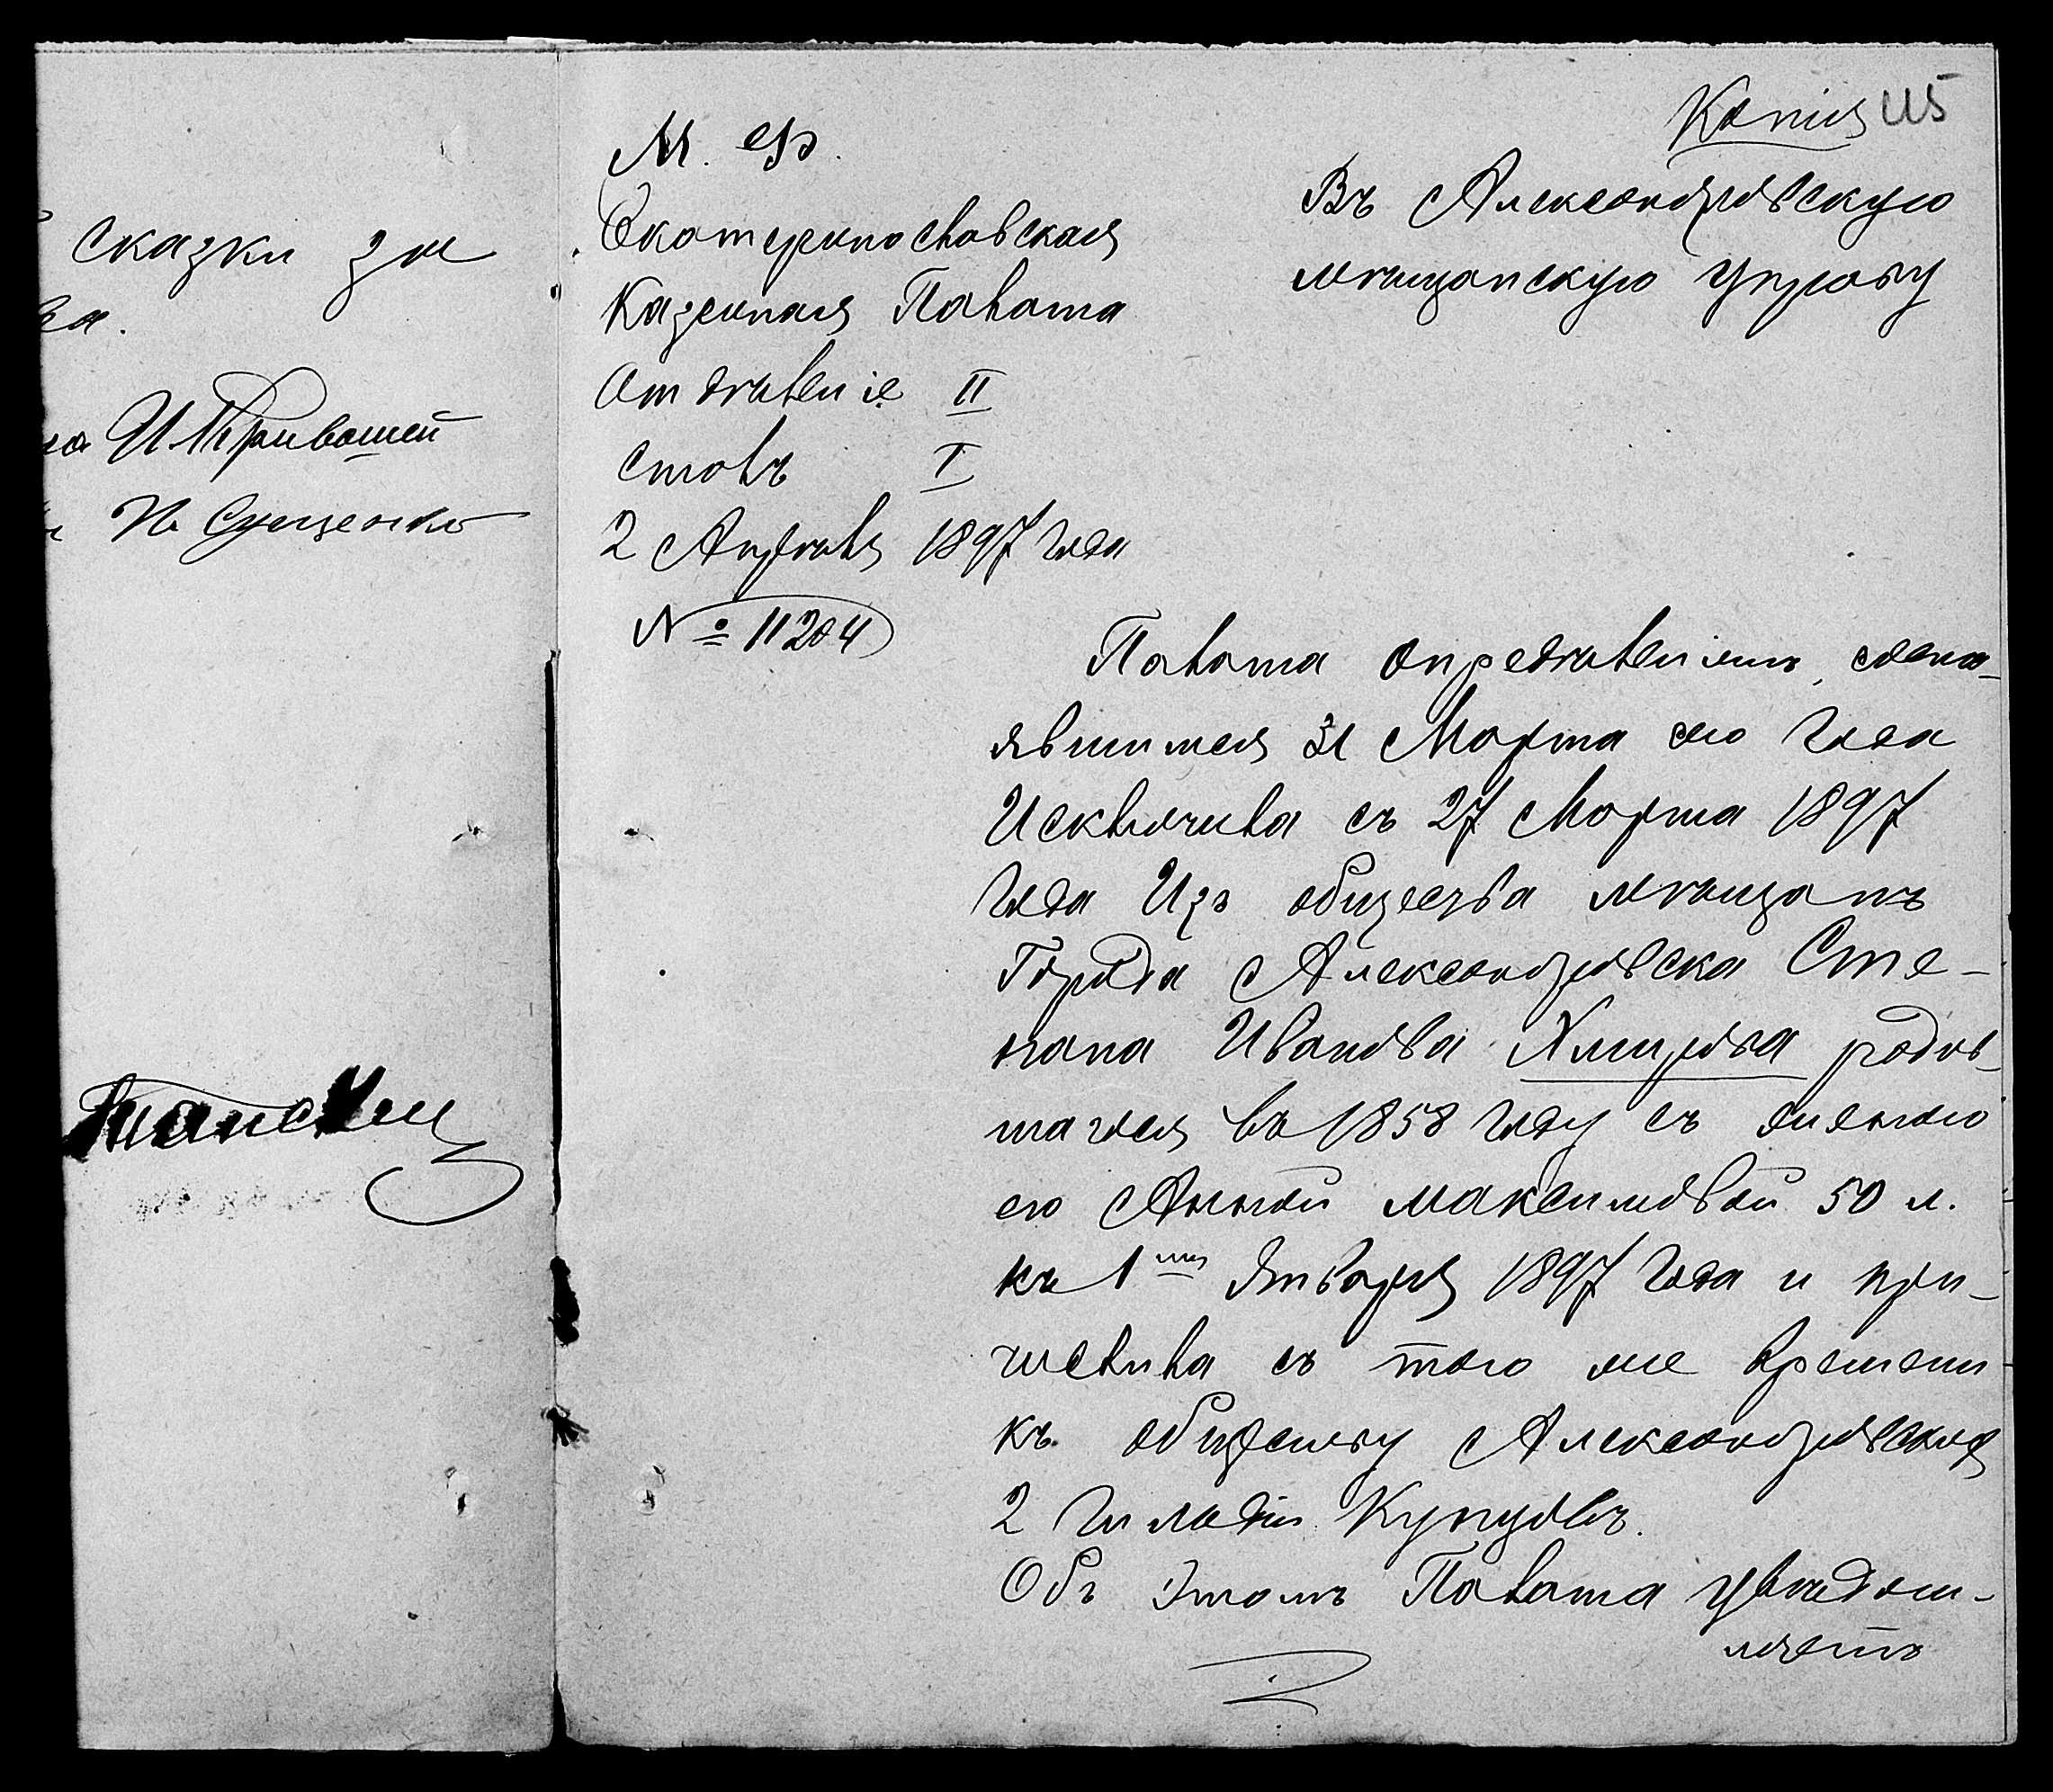 сказки за
ва.
И Кривошей
И Сущенко
Копия 115
М. Ф.
Екатеринославская
Казенная Палата
Отдѣленіе II
Столъ I
2 Апрѣля 1897 года
№ 11204
Въ Александровскую
мѣщанскую управу
Палата опредѣленіемъ, состо-
явшимся 31 Марта сего года
Исключила съ 27 Марта 1897
года Изъ общества мѣщанъ
Города Александровска Сте-
пана Иванова Хмирова родив-
шагося въ 1858 году съ женою
его Анной Максимовой 50 л.
къ 1му Января 1897 года и при-
числила съ того же времени
къ обществу Александровских
2 гильдіи Купцовъ.
Объ этомъ Палата увѣдом-
ляетъ